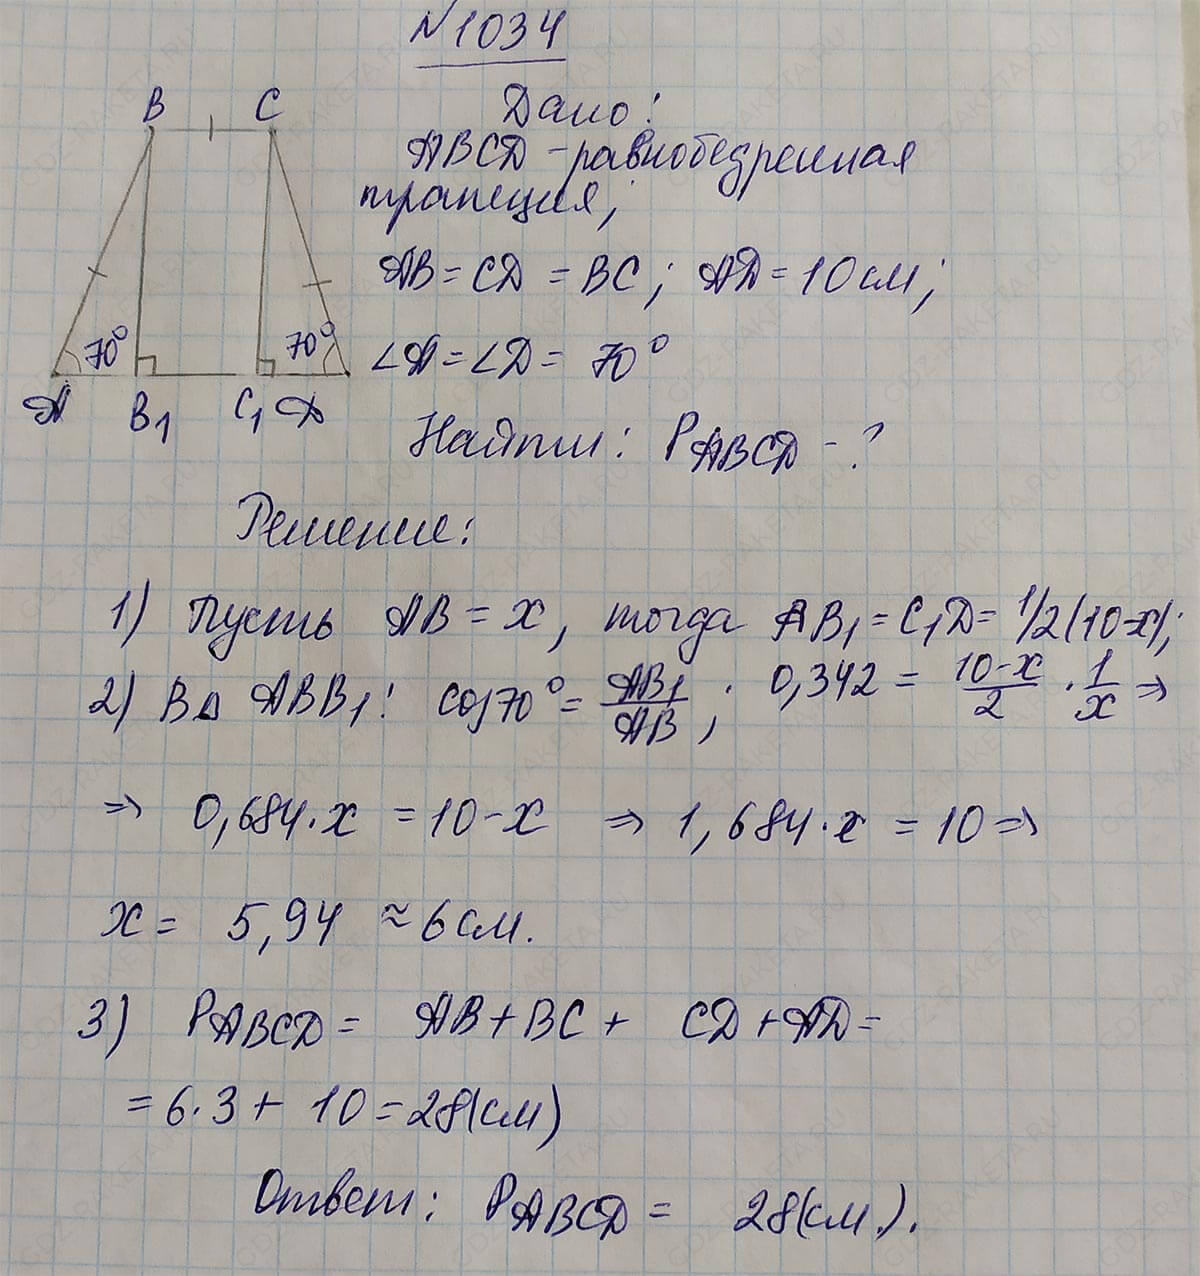 №1034
B C
70° 70°
A B₁ C₁ D
Дано:
ABCD - равнобедренная
трапеция;
AB = CD = BC; AD = 10 см;
∠A = ∠D = 70°
Найти: PABCD - ?
Решение:
1) Пусть AB = x, тогда AB₁ = C₁D = 1/2(10-x);
2) В Δ ABB₁: cos70° = AB₁/AB; 0,342 = (10-x)/2 · 1/x ⇒
⇒ 0,684·x = 10-x ⇒ 1,684·x = 10 ⇒
x = 5,94 ≈ 6 см.
3) PABCD = AB + BC + CD + AD =
= 6·3 + 10 = 28(см)
Ответ: PABCD = 28(см.).
GDZ-RAKETA.RU